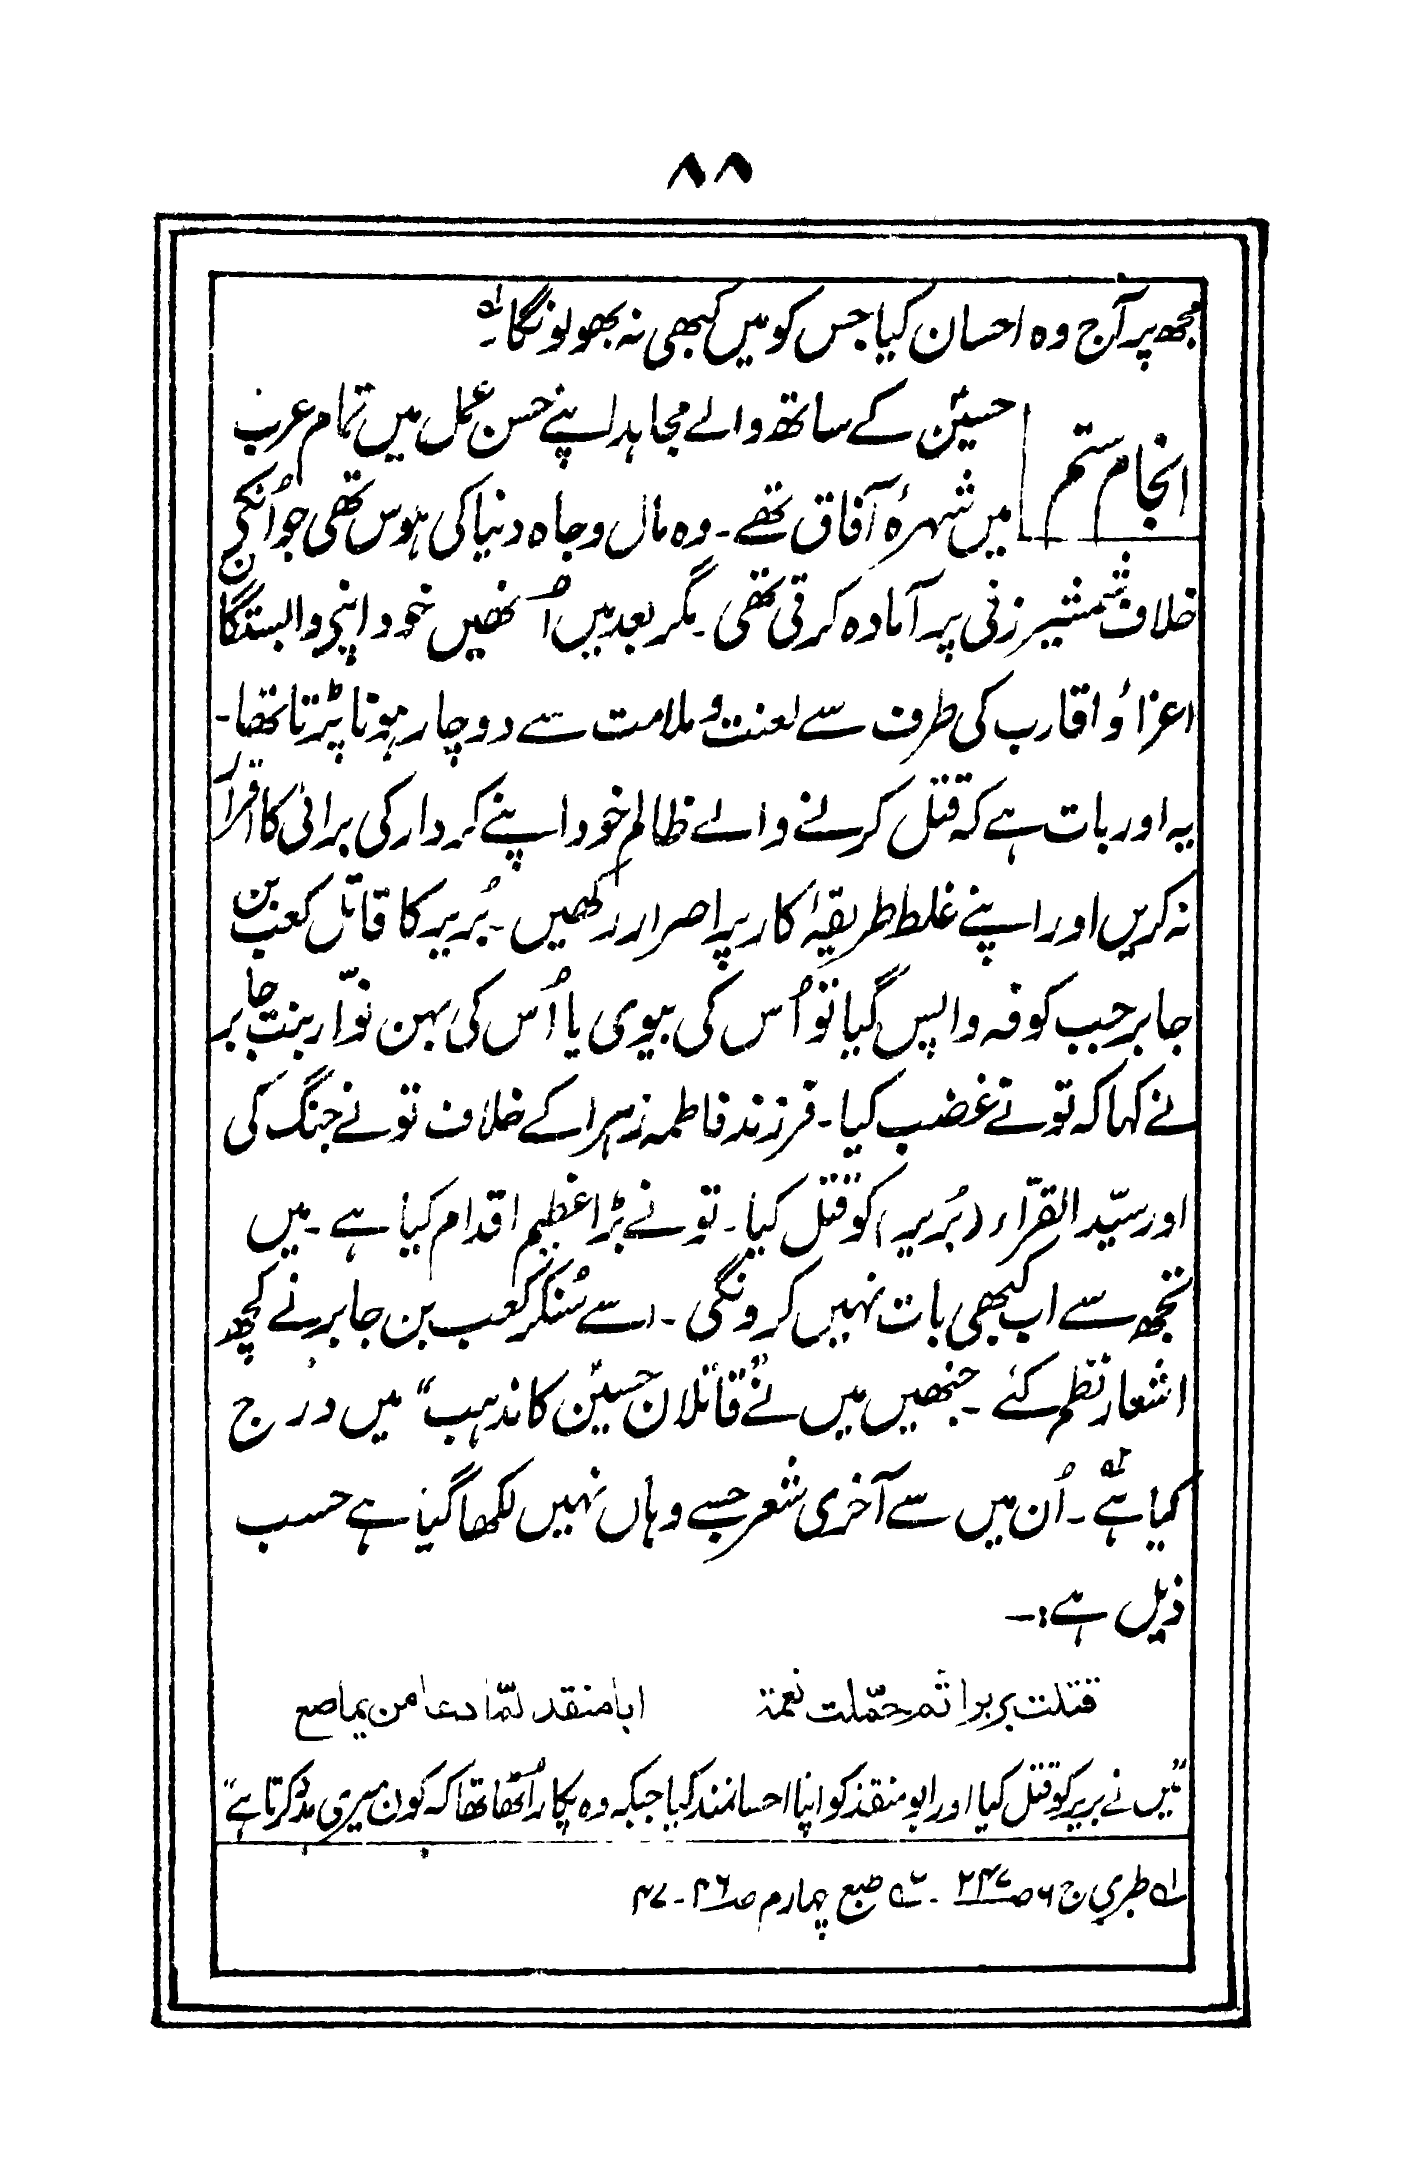 ۸۸
مجھ پر آج وہ احسان کیا جس کو میں کبھی نہ بھولونگا۔ لہ
انجام ستم
حسینؑ کے ساتھ والے مجاہد اپنے حسن عمل میں تمام عرب
میں شہرۂ آفاق تھے۔ وہ مال و جاہ دنیا کی ہوس تھی جو اُنکے
خلاف شمشیر زنی پر آمادہ کرتی تھی۔ مگر بعد میں اُنھیں خود اپنی وابستگان
اعزاؤ اقارب کی طرف سے لعنت و ملامت سے دوچار ہونا پڑتا تھا۔
یہ اور بات ہے کہ قتل کرنے والے ظالم خود اپنے کردار کی برائی کا اقرار
نہ کریں اور اپنے غلط طریقۂ کار پر اصرار رکھیں۔ بُریر کا قاتل کعب بن
جابر جب کوفہ واپس گیا تو اُس کی بیوی یا اُس کی بہن نوّار بنت جابر
نے کہا کہ تو نے غضب کیا۔ فرزند فاطمہ زہرا کے خلاف تو نے جنگ کی
اور سیّد القرّاء (بُریر) کو قتل کیا۔ تو نے بڑا عظیم اقدام کیا ہے۔ میں
تجھ سے اب کبھی بات نہیں کرونگی۔ اسے سُنکر کعب بن جابر نے کچھ
اشعار نظم کئے۔ جنھیں میں نے "قاتلان حسینؑ کا مذہب" میں درج
کیا ہے ۲ہ۔ اُن میں سے آخری شعر جسے وہاں نہیں لکھا گیا ہے حسب
ذیل ہے:۔
قتلت بریرا ثم حمّلت نعمۃ ابا منقذ لمّا دعا من یماصع
"میں نے بریر کو قتل کیا اور ابو منقذ کو اپنا احسانمند کیا جبکہ وہ پکار اُٹھا تھا کہ کون میری مدد کرتا ہے"
لہ طبری ج ۶ ص ۲۴۷ ۔ ۲ہ طبع چہارم ص ۴۶۔۴۷